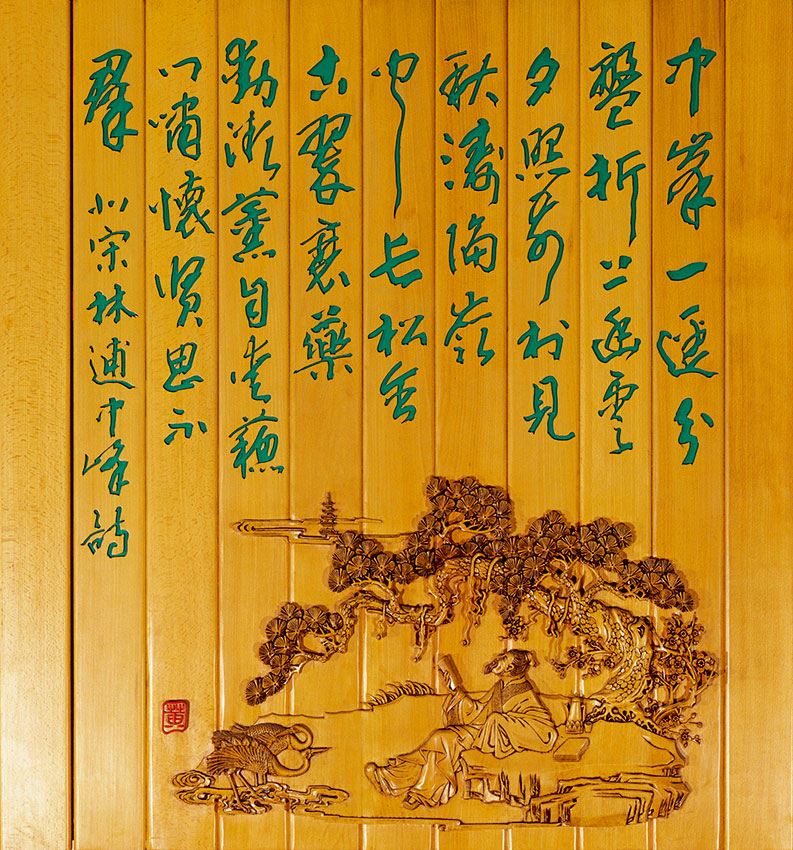 中峯一逕分
盤折上幽雲
夕照前村見
秋濤隔嶺
聞長松含
古翠衰藥
動微薰自愛蘇
門嘯懷賢思不
羣 北宋林逋中峰詩
黃